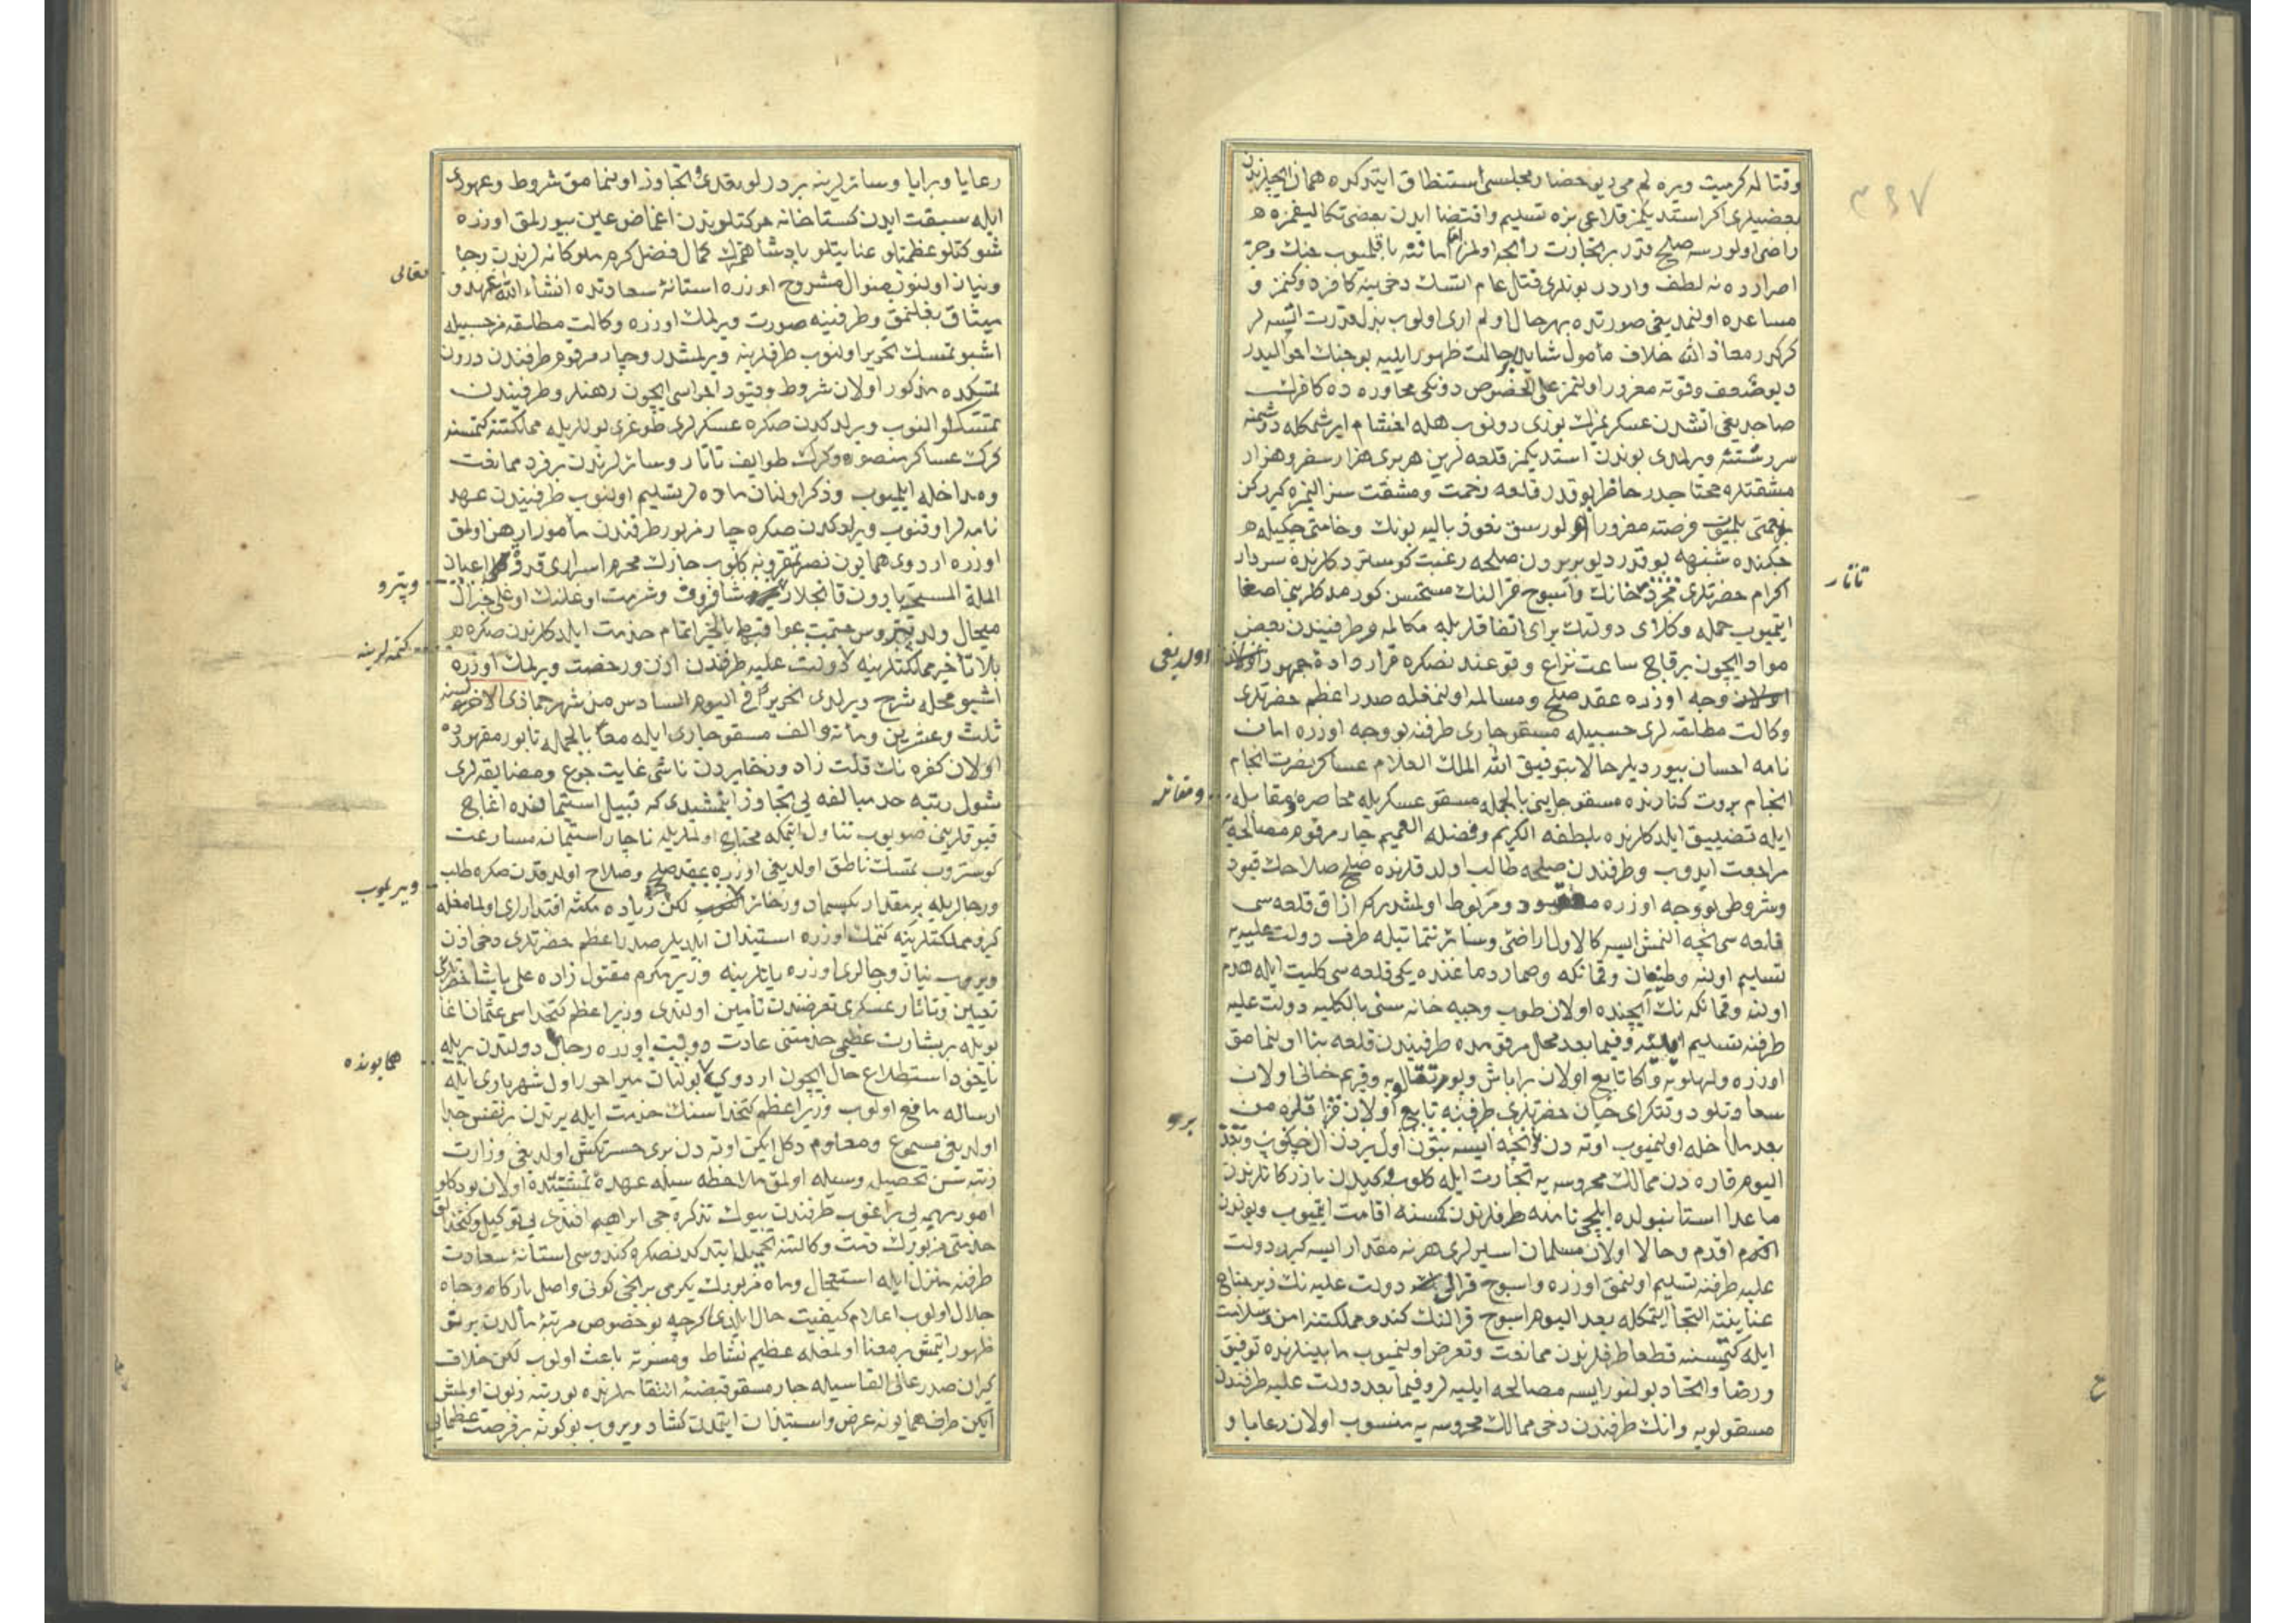 ٣٤٧
وقتاله كرميت ويره لم می ديو حضار مجلسی استنطاق ايتدكده همان ايچلرندن
بعضيلری اكر استديكمز قلاعی بزه تسليم واقتضا ايدن بعضی تكاليفمزه
راضی اولورسه صلح قدر بر تجارت رابحه اولمز اما ياقليوب جنك وحربه
اصرارده نه لطف واردر بونلری قتل عام ايتسك دخی ينه كافر دوكنمز و
مساعده اولنمديغی صورتده بهر حال اولم اری اولوب بذل قدرت ايتسه لر
كركدر معاذ الله خلاف مأمول شايد بر حالت ظهور ايليه بو جنك احواليدر
ديو ضعف وقوته مغرور اولنمز علی الخصوص دونكی محاوره ده كافرك
صاچديغی آتشدن عسكريمزك يوزی دونوب هله اخشام ايرشمكله دشمنه
سررشته ويرلمدی بوندن استديكمز قلعه لرين هر بری هزار سفر وهزار
مشقتله محتاجدر حاظر بو قدر قلعه زحمت ومشقت سز المزه كيررکن
فرصته مغرور اولورسق نعوذ بالله بونك وخامتی چكيله
جكنده شبهه يوقدر ديو بربرون صلحه رغبت كوستردكلرنده سردار
تاتار
اكرام حضرتلری خانك واسوج قرالنك مستحسن كورمدكلرينه اصغا
ايتميوب جمله وكلای دولتك رای اتفاقلريله مكالمه و طرفيندن بعض
مواد ايچون برقاج ساعت نزاع وقوعندنصكره قرار دادۀ جمهور
اولديغی
وجه اوزره عقد صلح ومسالمه اولنمغله صدر اعظم حضرتلری
وكالت مطلقه لری حسبيله مسقو چاری طرفنه بو وجه اوزره امان
نامه احسان بيورديلر حالا بتوفيق الله الملك العلام عساكر نصرت انجام
انجام بروت كنارنده مسقو چارينی بالجمله مسقو عسكريله محاصره ومقابله
ومقاتله
ايله تضييق ايلدكلرنده بلطفه الكريم وفضله العميم چار مرقوم مصالحه يه
مراجعت ايدوب وطرفندن صلحه طالب اولدقلرنده صلح صلاحك قيود
وشروطی بو وجه اوزره معقود ومربوط اولمشدركه ازاق قلعه سی
قلعه سی نيجه آلنمش ايسه كالاول اراضی وسائر تتماتيله طرف دولت عليه يه
تسليم اولنه وطيغان وقمانكه وصمارده ماعنده يكی قلعه سی كليت ايله هدم
اولنه وقمانكه نك ايچنده اولان طوب وجبه خانه سنی بالكليه دولت عليه
طرفنه تسليم ايليه وفيما بعد محل مرقومده طرفيندن قلعه بنا اولنمامق
اوزره ولهلويه واكا تابع اولان براباش وبوتقالويه وقريم خانی اولان
سعادتلو دولتكرای خان حضرتلری طرفنه تابع اولان قزاقلره من
برو
بعد مداخله اولنميوب اوته دن نيجه ايسه بتون اول يردن ال چكوب وبعد
اليوم قاره دن ممالك محروسه يه تجارت ايله كلوب كيدن بازركانلرندن
ماعدا استانبولده ايلچی نامنه طرفلرندن كمسنه اقامت ايتميوب وبوندن
اقدم وحالا اولان مسلمان اسيرلری هر نه مقدار ايسه كيرو دولت
عليه طرفنه تسليم اولنمق اوزره واسوج قرالی دولت عليه نك زير جناح
عنايتنه التجا ايتمكله بعد اليوم اسوج قرالنك كندو مملكتنه امن وسلامت
ايله كتمسنه قطعا طرفلرندن ممانعت وتعرض اولنميوب مابينلرنده توفيق
ورضا واتحاد بولنور ايسه مصالحه ايليه لر وفيما بعد دولت عليه طرفندن
مسقولويه وانك طرفندن دخی ممالك محروسه يه منسوب اولان رعايا و
رعايا وبرايا وسائرلرينه بر درلو تعدی وتجاوز اولنمامق شروط وعهودی
ايله سبقت ايدن كستاخانه حركتلرندن اغماض عين بيورلمق اوزره
شوكتلو عظمتلو عنايتلو پادشاهمزك كمال فضل كرم ملوكانه لرندن رجا
تعالی
ونياز اولنوب منوال مشروح اوزره استانۀ سعادتده انشاء الله عهد و
ميثاق بغلنمق وطرفينه صورت ويرلمك اوزره وكالت مطلقه مز حسبيله
اشبو تمسك تحرير اولنوب طرفلرينه ويرلمشدر وچار مرقوم طرفندن درون
تمسكده مذكور اولان شروط وقيود اجراسی ايچون رهنلر وطرفيندن
تمسكلر النوب ويرلدكدن صكره عسكرلری طوغری يوللريله مملكتنه كتمسنه
كرك عساكر منصوره وكرك طوايف تاتار وسائرلرندن بر فرد ممانعت
ومداخله ايلميوب وذكر اولنان ماده لر تسليم اولنوب طرفيندن عهد
نامه لر اوقنوب ويرلدكدن صكره چار مزبور طرفندن مأمور رهن اولمق
اوزره اردوی همايون نصرتمقرونه كلوب چارك محرم اسراری قدوۀ اعيان
وپترو
الملة المسيحيه بارون قانجلار شافروف وشرمت اوغلنك اوغلی جنرال
ميحال ولد پتروس ختمت عواقبهما بالخير اتمام خدمت ايلدكلرندن صكره
كتمه لرينه
بلا تأخير مملكتلرينه دولت عليه طرفندن اذن ورخصت ويرلمك اوزره
اشبو محله شرح ويرلدی تحريرا فی اليوم السادس من شهر جماذی الاخره لسنه
ثلث وعشرين ومائة والف مسقو چاری ايله معا بالجمله تابور مقهورده
اولان كفره نك قلت زاد وذخايردن ناشی غايت جوع ومضايقه لری
شول رتبه حد مبالغه يی تجاوز ايتمشيدی كه قبيل استيمانده اغاج
قبوقلرينی صويوب تناول ايتمكه محتاج اولملريله ناچار استيمانه مسارعت
كوستروب تمسك ناطق اولديغی اوزره عقد صلح وصلاح اولدقدن صكره طلب
ويريلوب
ورجالريله بر مقدار بكسماد وذخائر لكن زياده مكثه اقتدارلری اولمامغله
كيرو مملكتلرينه كتمك اوزره استيذان ايلديلر صدر اعظم حضرتلری دخی اذن
ويروب نياز ورجالری اوزره يانلرينه وزير مكرم مقتول زاده علی پاشا حضرتلری
تعيين وتاتار عسكری تعرضندن تأمين اولندی وزير اعظم كتخداسی عثمان اغا
بويله بر بشارت عظيمی خدمتنی عادت ديرينه اوزره رجال دولتدن بريله
همايونده
ياخود استطلاع حال ايچون اردوی بولنان ميراخور اول شهرياری ايله
ارساله مانع اولوب وزير اعظم كتخداسنك خدمت ايله يرندن بر نفس جدا
اولديغی مسموع ومعلوم دكل ايكن اوته دن بری حسرتكش اولديغی وزارت
رتبه سن تحصيله وسيله اولمق ملاحظه سيله عهدۀ مشيتنده اولان بودكلو
امور مهمه يی براغوب طرفندن بيوك تذكره جی ابراهيم افندی يی توكيل وكتخدالق
خدمتی مزبورك ذمت وكالتنه تحميل ايتدكدنصكره كندوسی استانۀ سعادت
طرفنه منزل ايله استعجال وماه مزبورك يكرمی برنجی كونی واصل باركاه وجاه
جلال اولوب اعلام كيفيت حال ايلدی اكرچه بو خصوص مرتبۀ مألدن برتق
ظهور ايتمش بر معنا اولمغله عظيم نشاط ومسرته باعث اولوب لكن خلاف
كيران صدر عالی القاسيله چار مسقو قبضۀ انتقاملرنده بو رتبه زبون اولمش
ايكن طرف همايونه عرض واستيذان ايتمدن كشاد ويروب بوكونه بر فرصت عظمايی